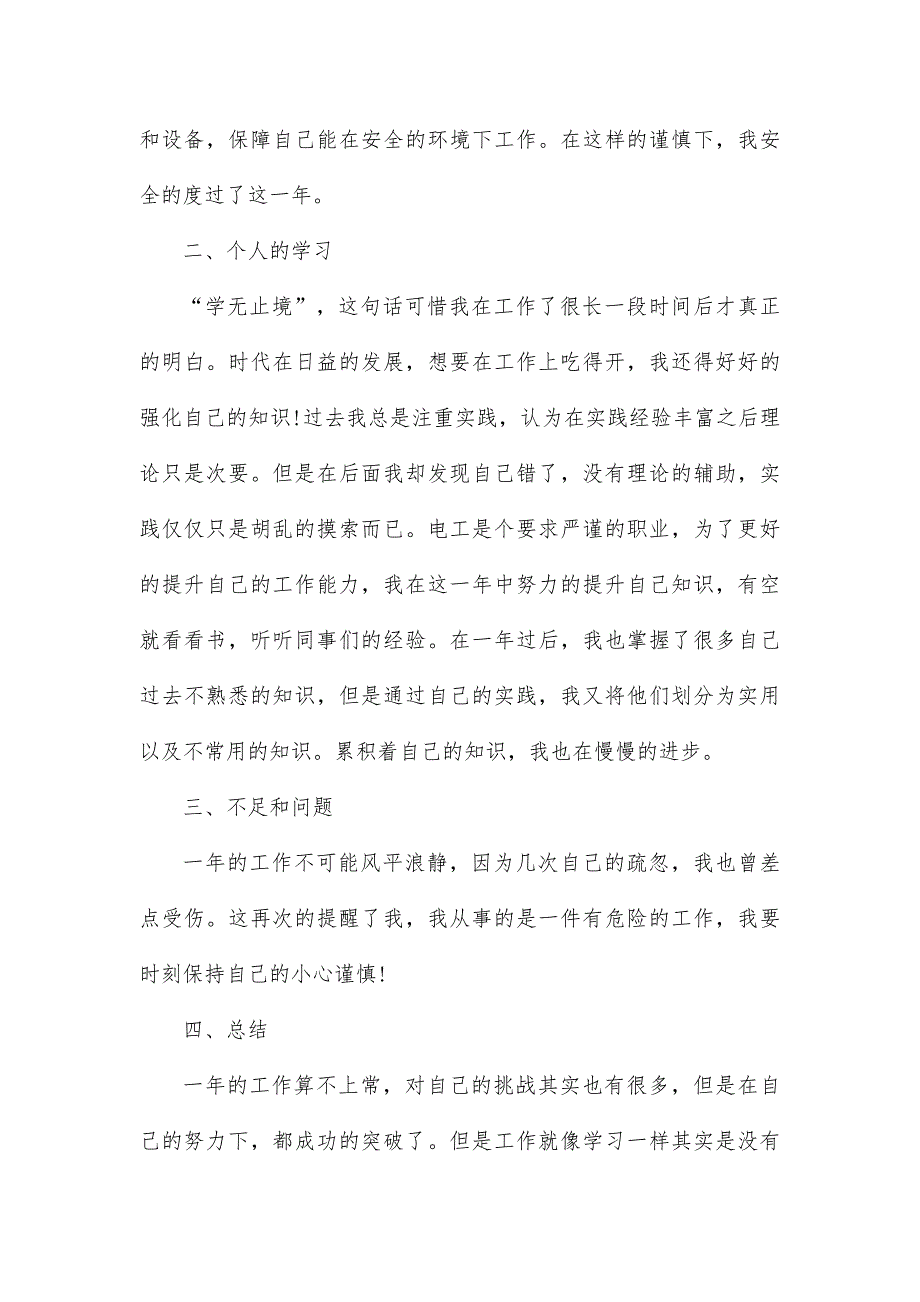 和设备，保障自己能在安全的环境下工作。在这样的谨慎下，我安
全的度过了这一年。
二、个人的学习
“学无止境”，这句话可惜我在工作了很长一段时间后才真正
的明白。时代在日益的发展，想要在工作上吃得开，我还得好好的
强化自己的知识!过去我总是注重实践，认为在实践经验丰富之后理
论只是次要。但是在后面我却发现自己错了，没有理论的辅助，实
践仅仅只是胡乱的摸索而已。电工是个要求严谨的职业，为了更好
的提升自己的工作能力，我在这一年中努力的提升自己知识，有空
就看看书，听听同事们的经验。在一年过后，我也掌握了很多自己
过去不熟悉的知识，但是通过自己的实践，我又将他们划分为实用
以及不常用的知识。累积着自己的知识，我也在慢慢的进步。
三、不足和问题
一年的工作不可能风平浪静，因为几次自己的疏忽，我也曾差
点受伤。这再次的提醒了我，我从事的是一件有危险的工作，我要
时刻保持自己的小心谨慎!
四、总结
一年的工作算不上常，对自己的挑战其实也有很多，但是在自
己的努力下，都成功的突破了。但是工作就像学习一样其实是没有